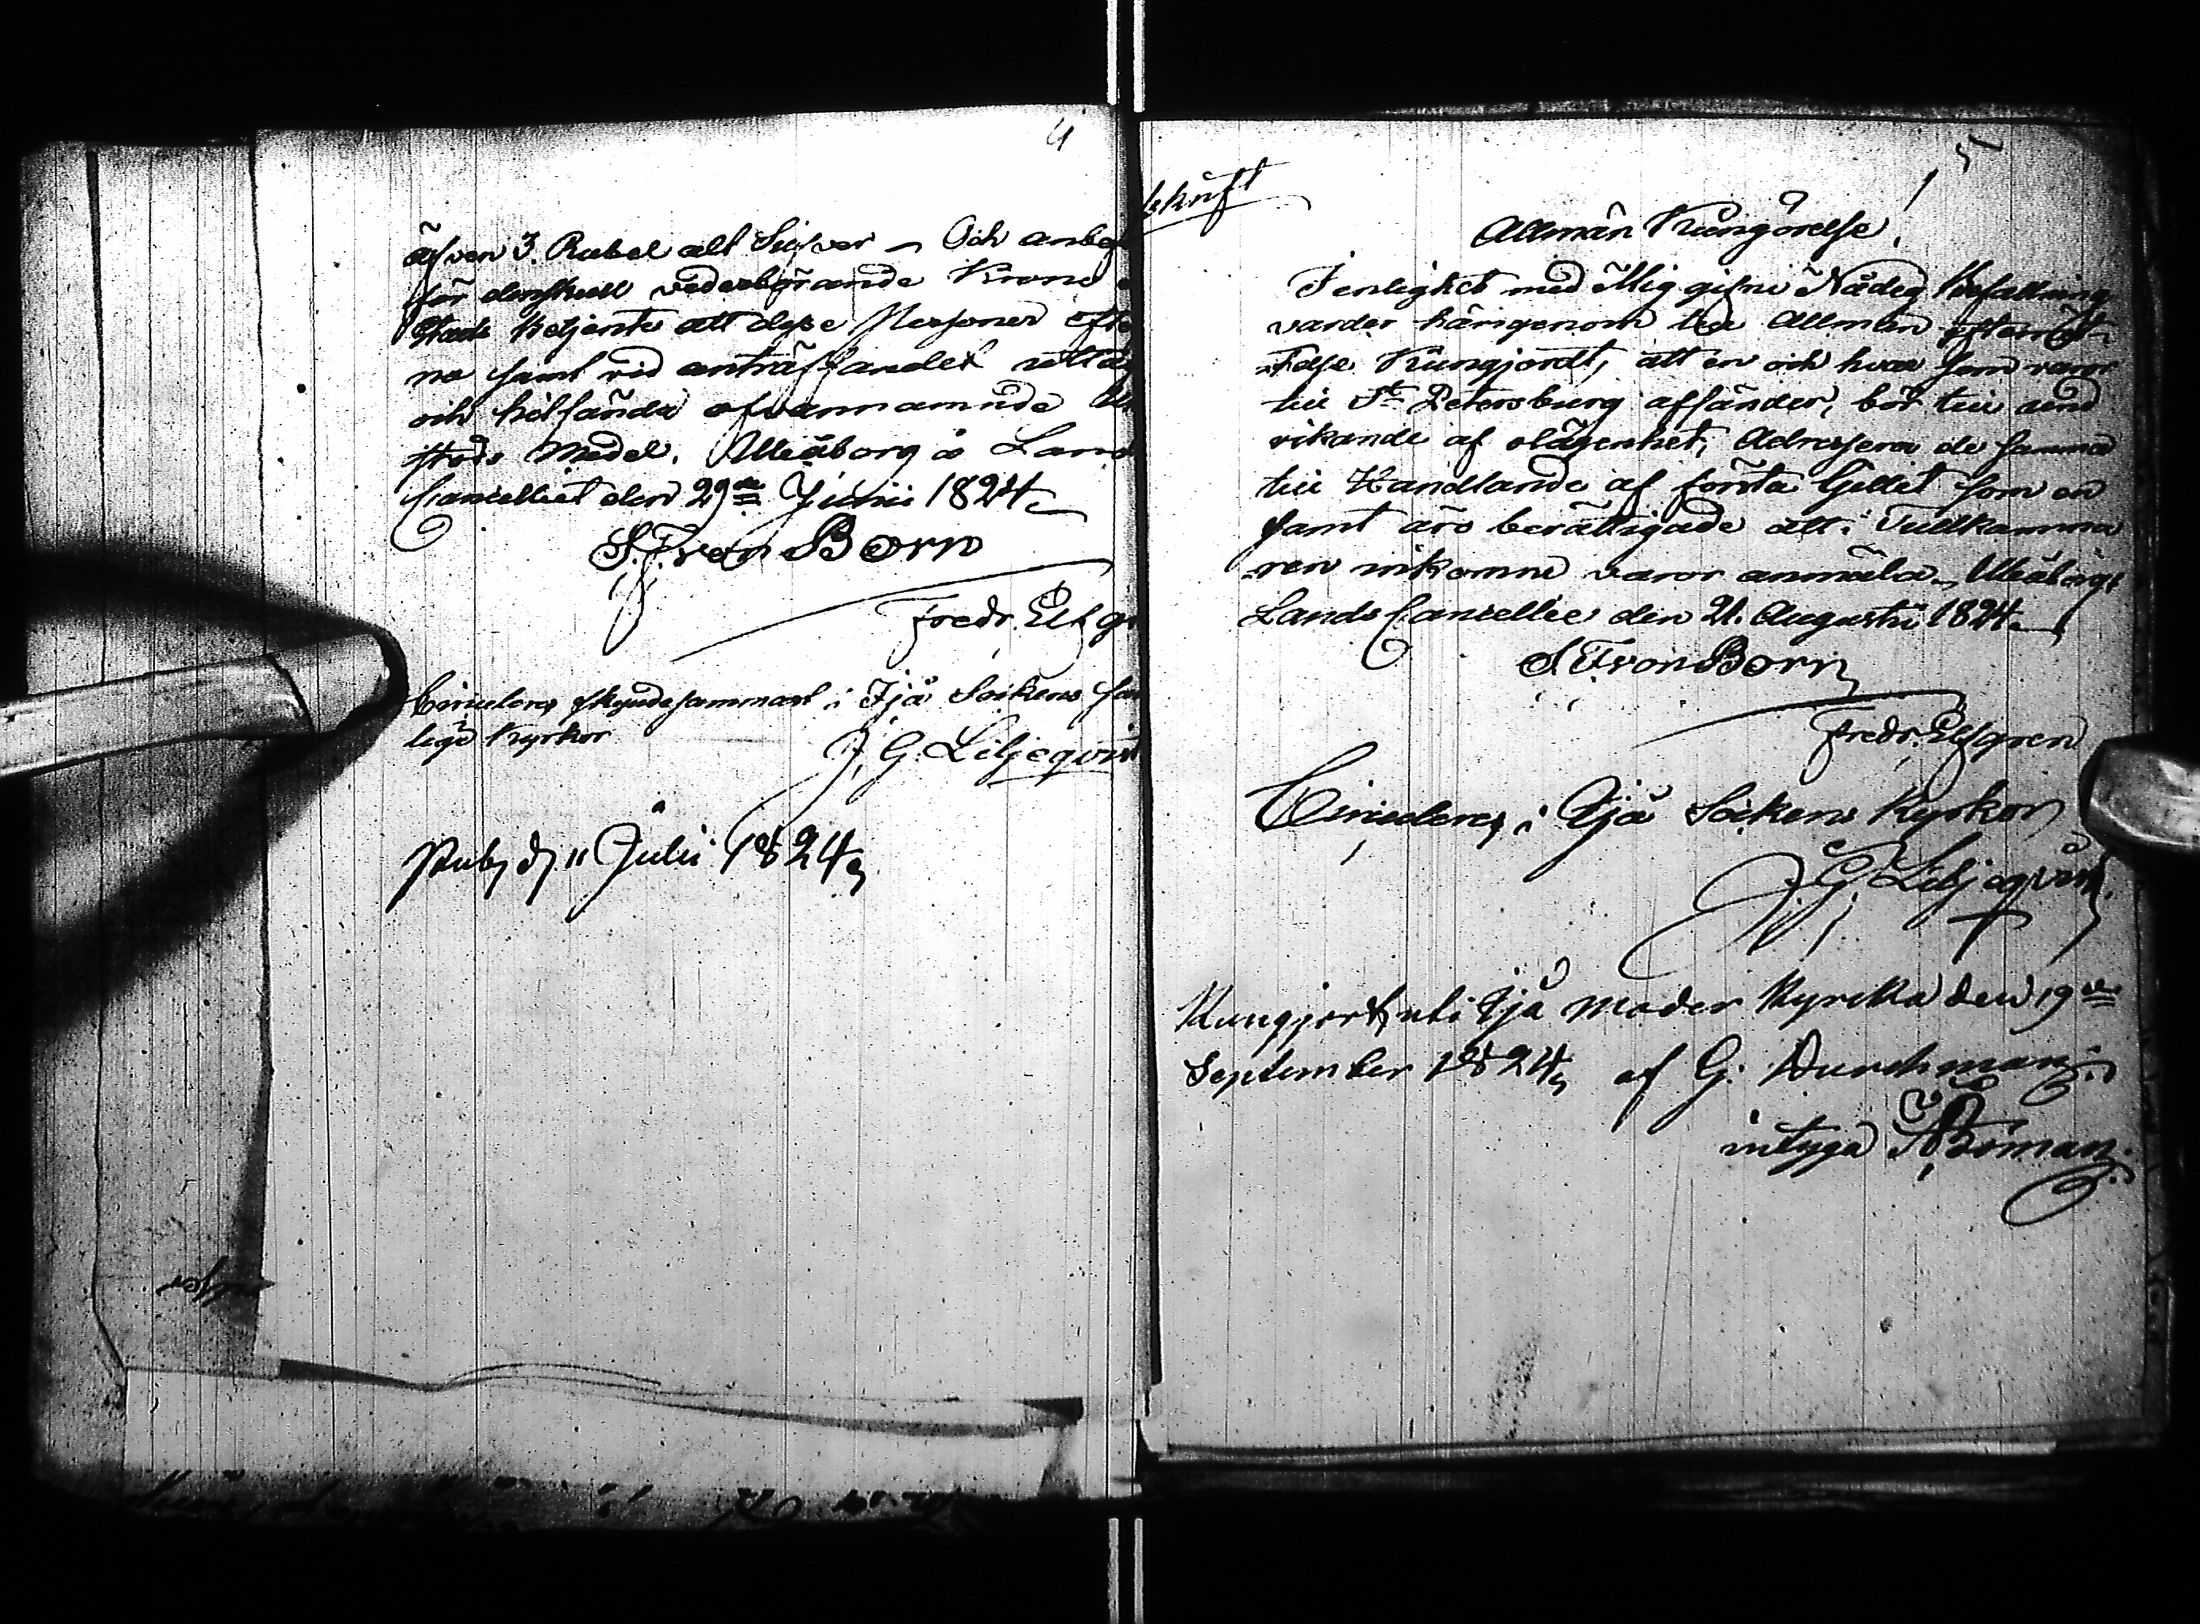 4
äfven 3. Rubel alt Silfver – Och anbef
för denskull vederbörande Krono o
Stads Betjente att desse Personer efte
na samt vid anträffandet
och hitsända ofvannämnde
stods Medel. Uleåborg å Land
Cancelliet den 29de Junii 1824
S. F. von Born
Fredr. Elfgr
Circulerar skyndesammast i Ijå Sokens sam
lige Kyrkor
J. G. Liljeqvist
Publ. d. 11 Julii 1824
5
skrift
Allmän Kungörelse
I enlighet med Mig gifne Nådig Befallning
varder härigenom till Allmän efterrät-
telse Kungjordt, att en och hvar som varor
till St Petersburg afsänder, bör till und
vikande af olägenhet, Adressera de samma
till Handlande af första Gillet som en
samt äro berättigade att i Tullkamma
ren inkomne varor anmäla. Uleåborgs
Lands Cancellie den 21. Augusti 1824
S. F. von Born
Fredr. Elfgren
Circulerar i Ijå Sokens Kyrkor
J. G. Liljeqvist
Kungjort uti Ijå Moder Kyrkka den 19de
September 1824 af G. Durchman
intyga